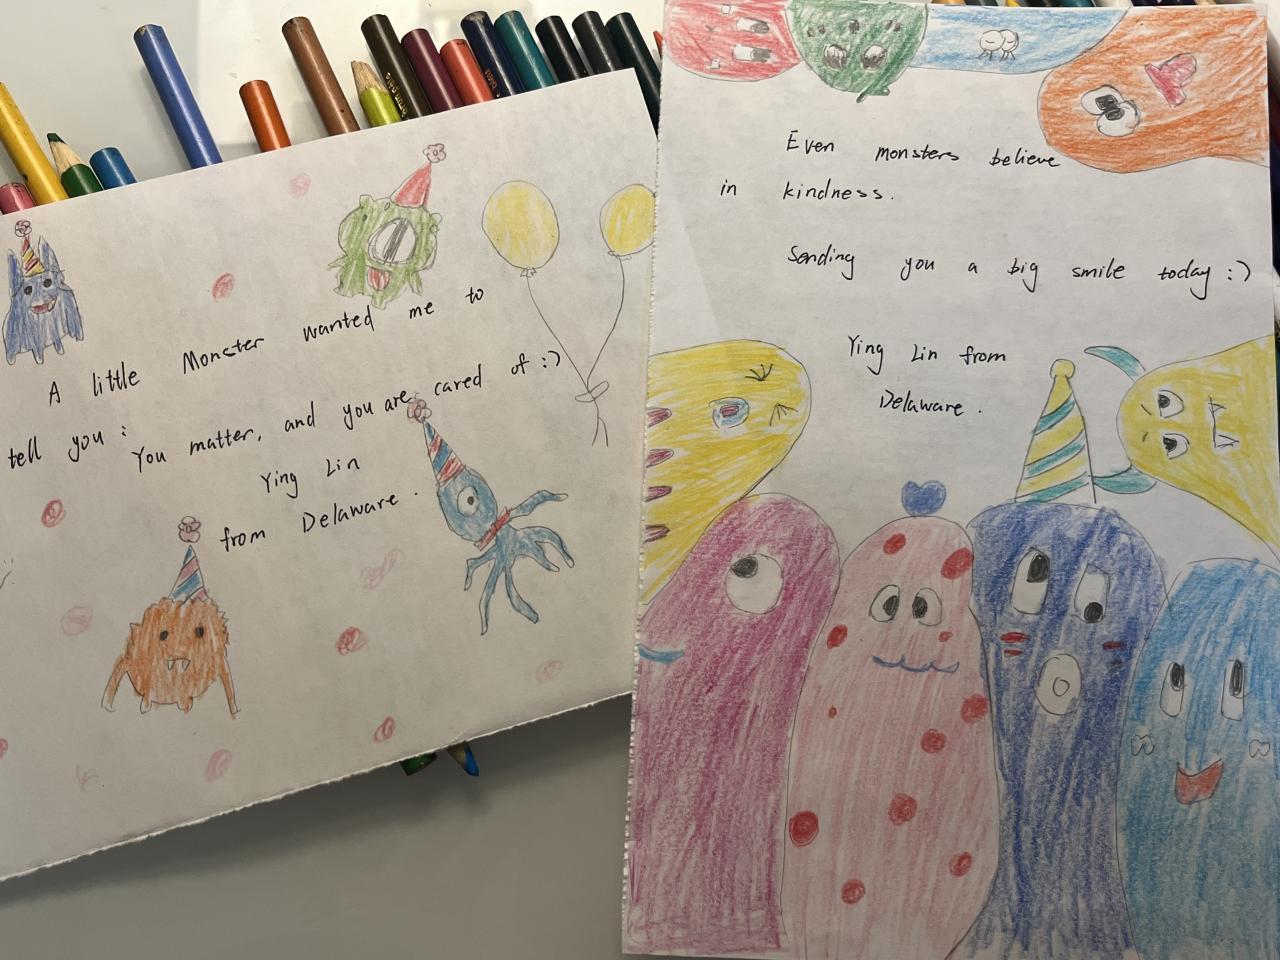 A little Monster wanted me to
tell you : You matter, and you are cared of :)
Ying Lin
from Delaware .
Even monsters believe
in kindness.
Sending you a big smile today :)
Ying Lin from
Delaware .